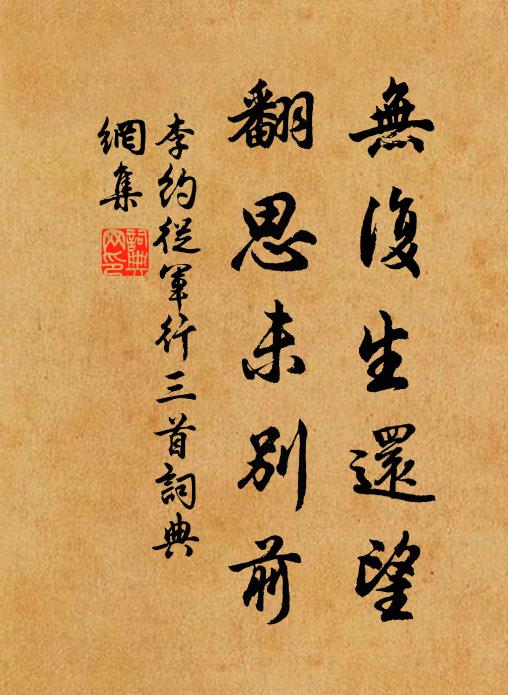 無復生還望
翻思未別前
李約從軍行三首詞典
網集
詞典網印